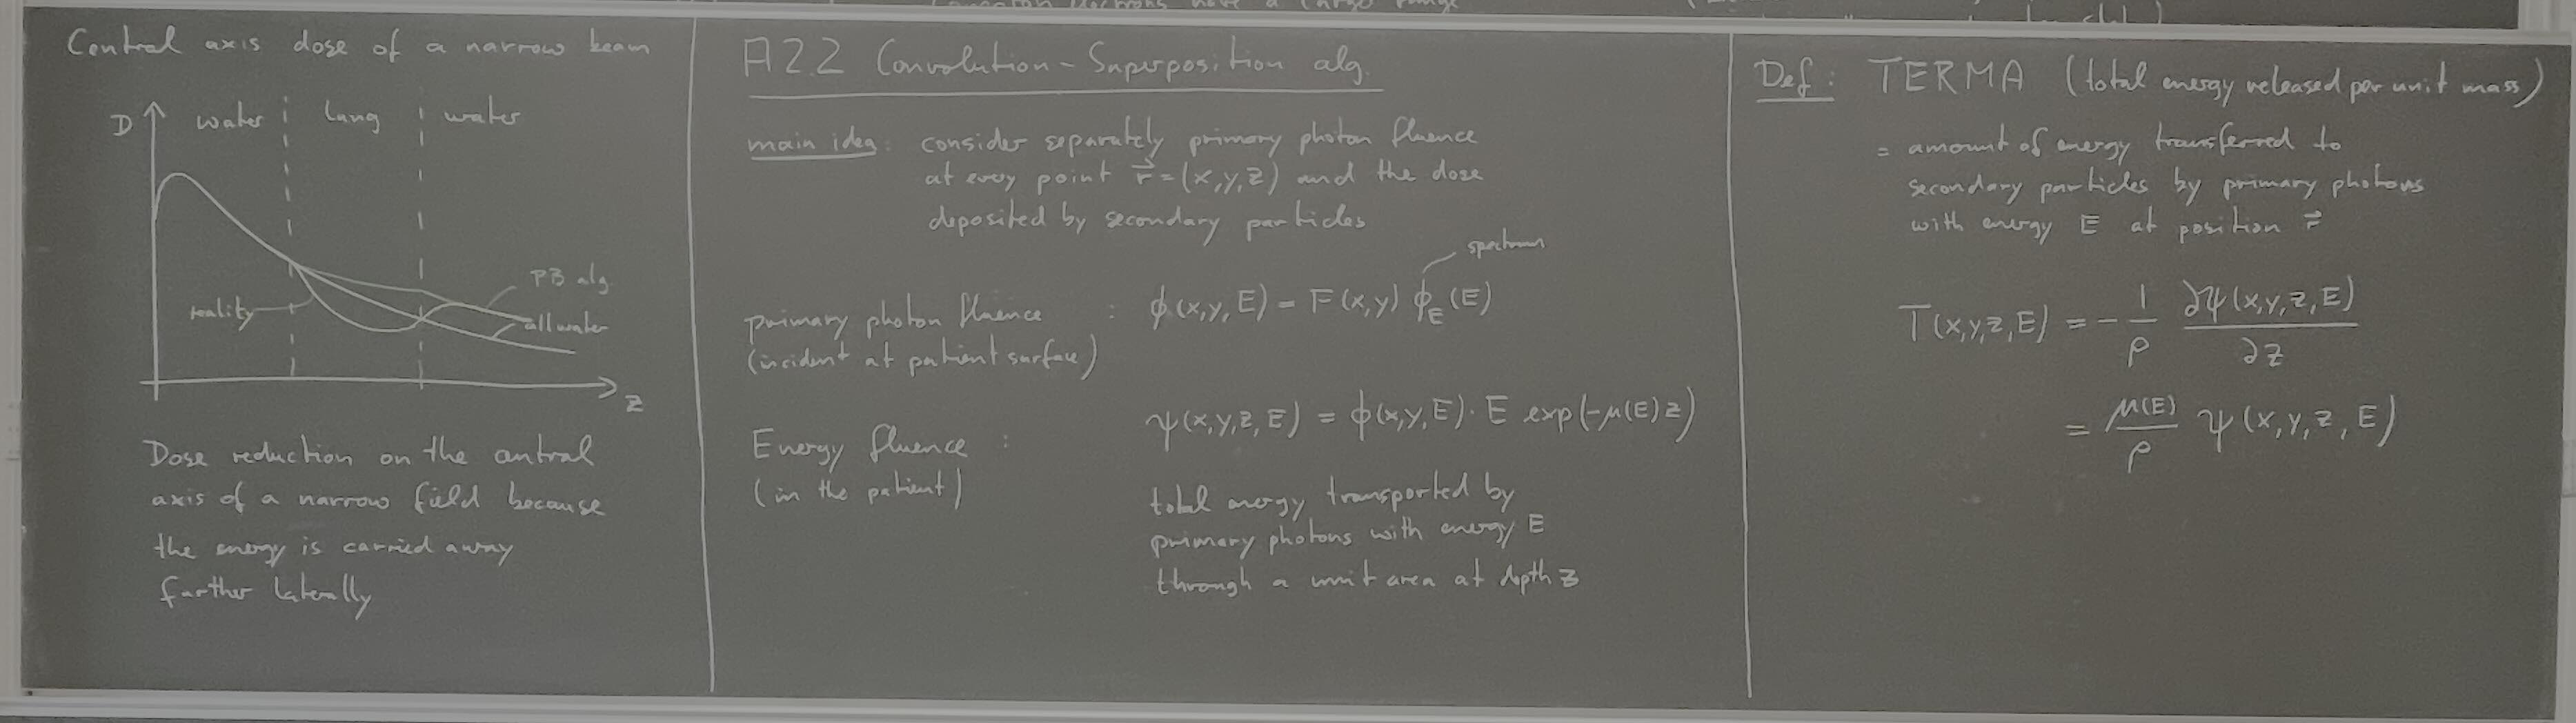 Central axis dose of a narrow beam
D
water
lung
water
PB alg.
reality
all water
z
Dose reduction on the central
axis of a narrow field because
the energy is carried away
further laterally
A2.2 Convolution-Superposition alg.
main idea: consider separately primary photon fluence
at every point r⃗=(x,y,z) and the dose
deposited by secondary particles
spectrum
primary photon fluence : ϕ(x,y,E) = F(x,y) ϕ_E(E)
(incident at patient surface)
Energy fluence : ψ(x,y,z,E) = ϕ(x,y,E)·E exp(-μ(E)z)
(in the patient)
total energy transported by
primary photons with energy E
through a unit area at depth z
Def: TERMA (total energy released per unit mass)
= amount of energy transferred to
secondary particles by primary photons
with energy E at position r⃗
T(x,y,z,E) = - 1/ρ ∂ψ(x,y,z,E)/∂z
= μ(E)/ρ ψ(x,y,z,E)